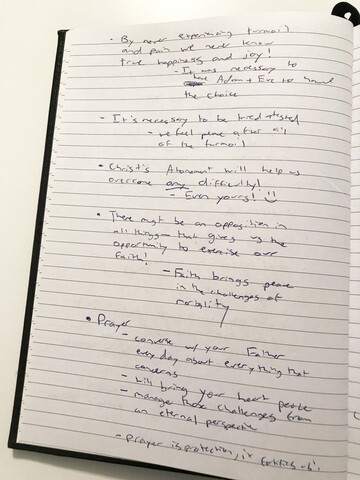 - By never experiencing turmoil
and pain we never know
true happiness and joy!
- It was necessary to
have Adam + Eve to have
the choice
- It is necessary to be tried + tested
- we feel peace after all
of the turmoil
• Christ's Atonement will help us
overcome any difficulty!
- Even yours! :)
• There must be an opposition in
all things - that gives us the
opportunity to exercise our
Faith!
- Faith brings peace
in the challenges of
mortality
• Prayer
- converse w/ your Father
every day about everything that
concerns
- will bring your heart peace
- manage those challenges from
an eternal perspective
- prayer is protection, it fortifies us.